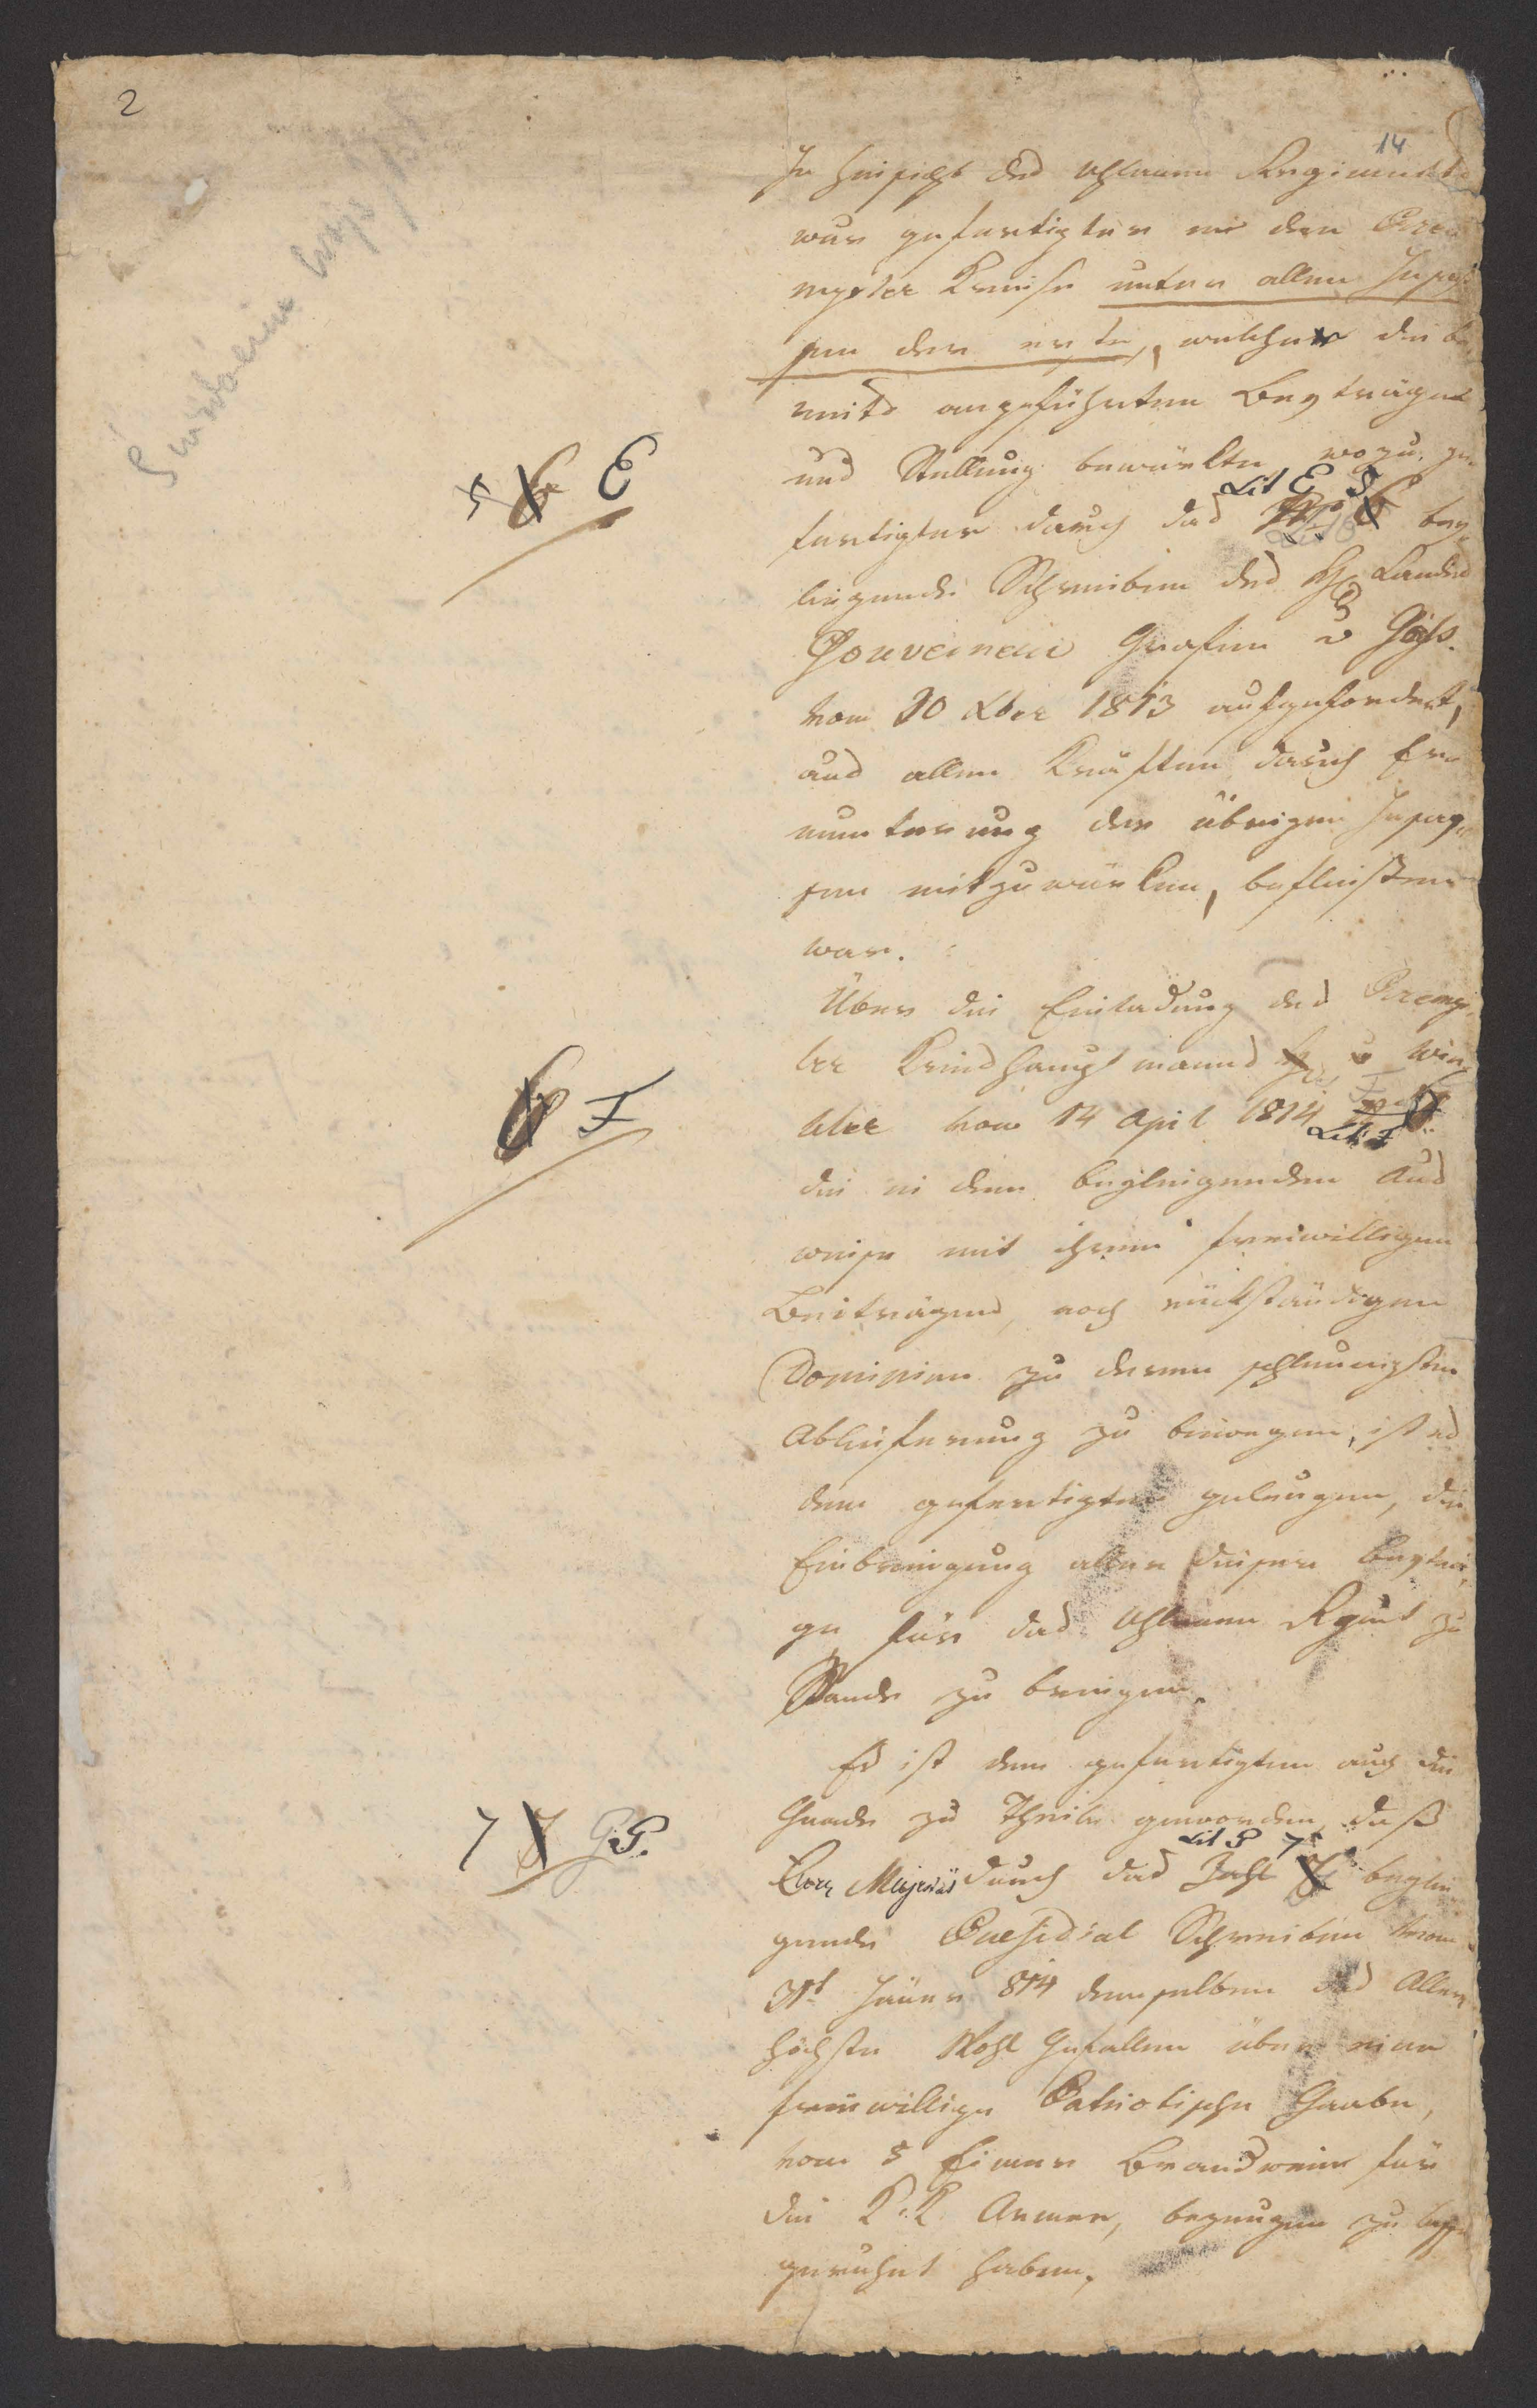 2
14
In hinsicht des Uhlanen Regiments
war gefertigter in dem Prze¬
mysler Kreise unter allen Insas¬
sen der erste, welcher die be¬
reits angeführten Beyträge
und Stellung bewürkte, wozu ge¬
5 6 E
Lit E 5
fertigter durch das N 6 bey¬
liegende Schreiben des H Landes
Gouverneur Grafen v Göß.
vom 30 Xber 1813 aufgefordert,
aus allen Kräften durch Er¬
munterung der übrigen Insas¬
sen mitzuwürken, beflissen
war.
Über die Einladung des Przemy¬
sler Kreishauptmanns H v Win¬
6 F
tler vom 14 April 1814
Lit: F
die in dem beyliegenden Aus
weise mit ihren freiwilligen
Beiträgen, noch rückständigen
Dominien zu deren schleunigsten
Ablieferung zu bewegen, ist es
dem gefertigten gelungen, die
Einbringung aller dieser Beyträ¬
ge für das Uhlanen Rgmt zu
Stande zu bringen.
Es ist dem gefertigten auch die
Gnade zu Theile geworden, daß
7 G.
Lit G 7
Euer Majestät durch das Zahl beylie¬
gende Praesidial Schreiben vom
31t Jäner 814 demselben das Aller¬
höchste Wohl Gefallen über eine
freiwillige Patriotische Gaabe,
von 5 Eimer Brandwein für
die K.K. Armee, bezeugen zu lassen
geruhet haben.